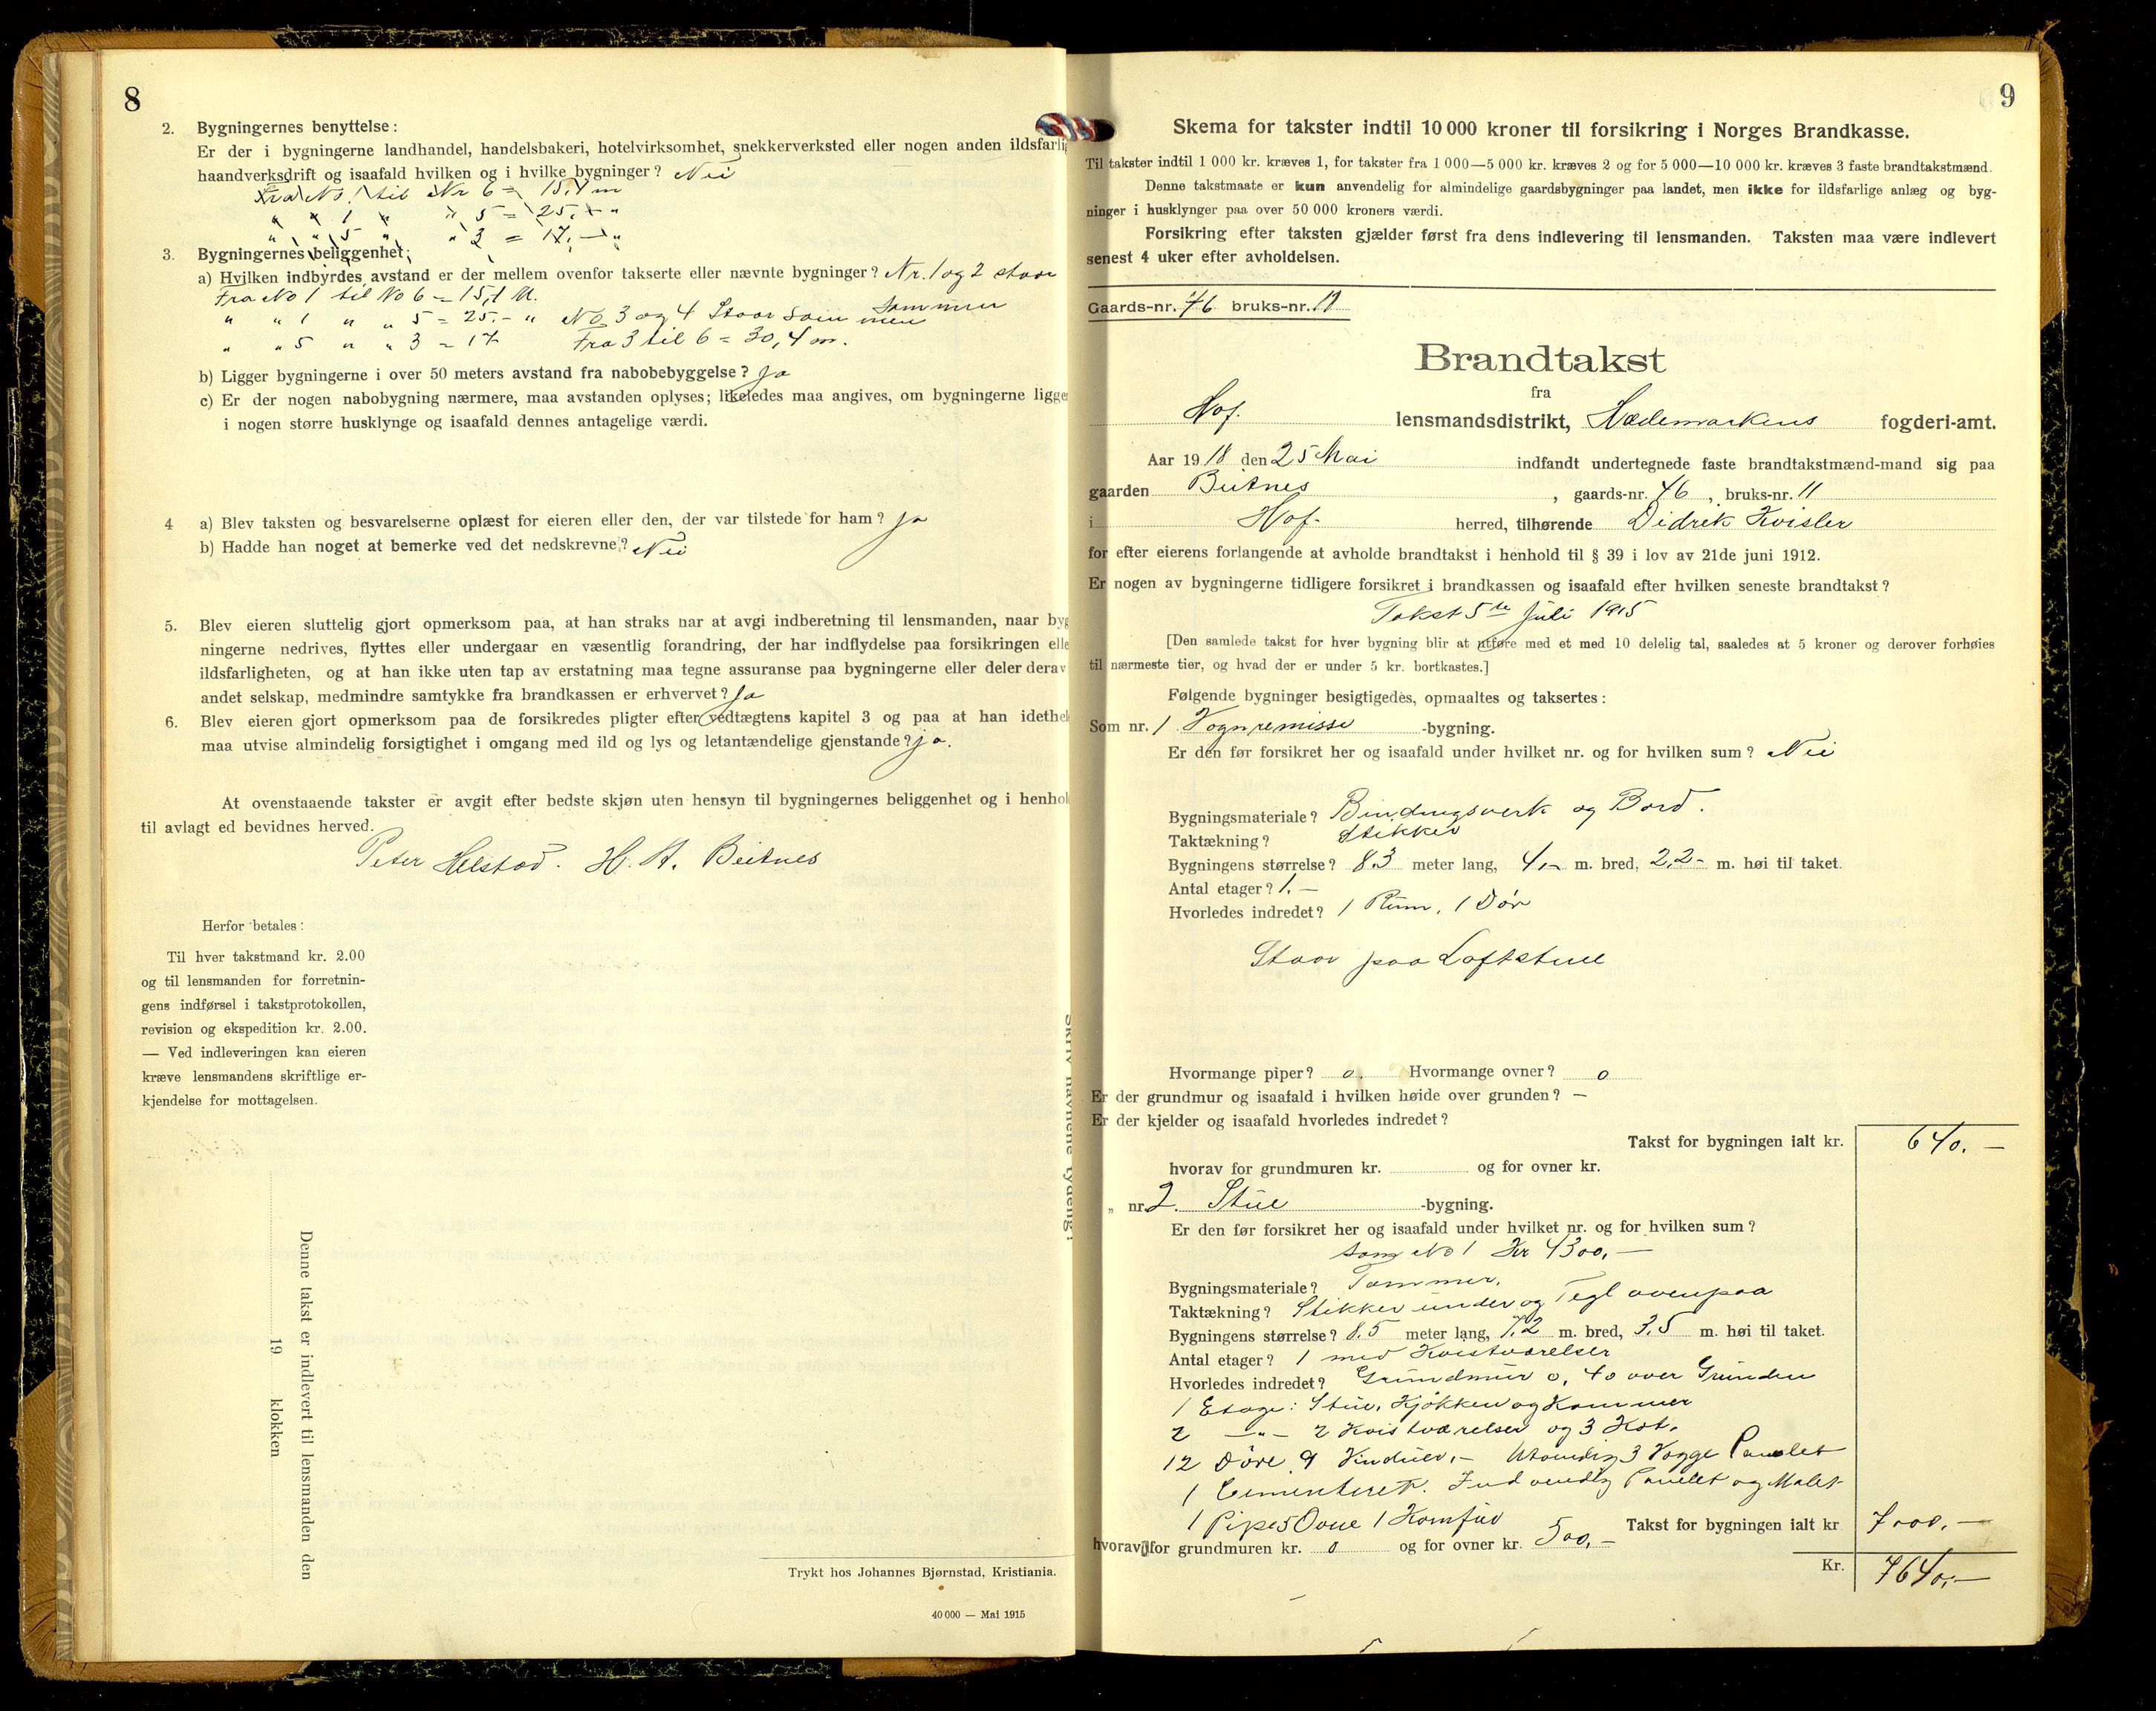 8
2. Bygningernes benyttelse:
Er der i bygningerne landhandel, handelsbakeri, hotelvirksomhet, snekkerverksted eller nogen anden ildsfarlig
haandverksdrift og isaafald hvilken og i hvilke bygninger? Nei
Fra No 1 til Nr 6 = 15,1 m
" " 1 " " 5 = 25,- "
" " 5 " " 3 = 17,- "
3. Bygningernes beliggenhet;
a) Hvilken indbyrdes avstand er der mellem ovenfor takserte eller nævnte bygninger? Nr. 1 og 2 staar
sammen
Fra No 1 til No 6 = 15,1 M.
" " 1 " " 5 = 25.- " No 3 og 4 Staar Sam men
" " 5 " " 3 = 17 Fra 3 til 6 = 30,4 m.
b) Ligger bygningerne i over 50 meters avstand fra nabobebyggelse? Ja
c) Er der nogen nabobygning nærmere, maa avstanden oplyses; likeledes maa angives, om bygningerne ligger
i nogen større husklynge og isaafald dennes antagelige værdi.
4 a) Blev taksten og besvarelserne oplæst for eieren eller den, der var tilstede for ham? Ja
b) Hadde han noget at bemerke ved det nedskrevne? Nei
5. Blev eieren sluttelig gjort opmerksom paa, at han straks har at avgi indberetning til lensmanden, naar byg
ningerne nedrives, flyttes eller undergaar en væsentlig forandring, der har indflydelse paa forsikringen elle
ildsfarligheten, og at han ikke uten tap av erstatning maa tegne assuranse paa bygningerne eller deler derav
andet selskap, medmindre samtykke fra brandkassen er erhvervet? Ja
6. Blev eieren gjort opmerksom paa de forsikredes pligter efter vedtægtens kapitel 3 og paa at han idethel
maa utvise almindelig forsigtighet i omgang med ild og lys og letantændelige gjenstande? ja.
At ovenstaaende takster er avgit efter bedste skjøn uten hensyn til bygningernes beliggenhet og i henhol
til avlagt ed bevidnes herved.
Peter Helstad. H. A. Beitnes
Herfor betales:
Til hver takstmand kr. 2.00
og til lensmanden for forretnin-
gens indførsel i takstprotokollen,
revision og ekspedition kr. 2.00.
— Ved indleveringen kan eieren
kræve lensmandens skriftlige er-
kjendelse for mottagelsen.
Skriv navnene tydelig!
Denne takst er indlevert til lensmanden den
19 klokken
Trykt hos Johannes Bjørnstad, Kristiania.
40 000 — Mai 1915
9
Skema for takster indtil 10 000 kroner til forsikring i Norges Brandkasse.
Til takster indtil 1 000 kr. kræves 1, for takster fra 1 000—5 000 kr. kræves 2 og for 5 000—10 000 kr. kræves 3 faste brandtakstmænd.
Denne takstmaate er kun anvendelig for almindelige gaardsbygninger paa landet, men ikke for ildsfarlige anlæg og byg-
ninger i husklynger paa over 50 000 kroners værdi.
Forsikring efter taksten gjælder først fra dens indlevering til lensmanden. Taksten maa være indlevert
senest 4 uker efter avholdelsen.
Gaards-nr. 76 bruks-nr. 11
Brandtakst
fra
Hof. lensmandsdistrikt, Hedemarkens fogderi-amt.
Aar 1918 den 25 Mai indfandt undertegnede faste brandtakstmænd-mand sig paa
gaarden Beitnes, gaards-nr. 76, bruks-nr. 11
i Hof. herred, tilhørende Didrik Kvisler
for efter eierens forlangende at avholde brandtakst i henhold til § 39 i lov av 21de juni 1912.
Er nogen av bygningerne tidligere forsikret i brandkassen og isaafald efter hvilken seneste brandtakst?
Takst 5te Juli 1915
[Den samlede takst for hver bygning blir at utføre med et med 10 delelig tal, saaledes at 5 kroner og derover forhøies
til nærmeste tier, og hvad der er under 5 kr. bortkastes.]
Følgende bygninger besigtigedes, opmaaltes og taksertes:
Som nr. 1 Vognremisse -bygning.
Er den før forsikret her og isaafald under hvilket nr. og for hvilken sum? Nei
Bygningsmateriale? Bindingsverk og Bord.
Taktækning? Stikker
Bygningens størrelse? 8.3 meter lang, 4,- m. bred, 2,2- m. høi til taket.
Antal etager? 1.—
Hvorledes indredet? 1 Rum, 1 Dør
Staar paa Loftstue
Hvormange piper? 0. Hvormange ovner? 0
Er der grundmur og isaafald i hvilken høide over grunden? —
Er der kjelder og isaafald hvorledes indredet?
Takst for bygningen ialt kr. 640.—
hvorav for grundmuren kr. og for ovner kr.
„ nr. 2. Stue -bygning.
Er den før forsikret her og isaafald under hvilket nr. og for hvilken sum?
som No 1 Kr 4300,—
Bygningsmateriale? Tømmer.
Taktækning? Stikker under og Tegl ovenpaa
Bygningens størrelse? 8,5 meter lang, 7,2 m. bred, 3,5 m. høi til taket.
Antal etager? 1 med Kvistværelser
Hvorledes indredet? Grundmur 0,40 over Grunden
1 Etage: Stue, Kjøkken og Kammer
2 —"— 2 Kvistværelser og 3 Kot.
12 Døre 9 Vinduer,— Utvendig 3 Vægge Panelet
1 Cementeret. Indvendig Panelet og Malet
1 Pipe 5 Ovne 1 Komfur Takst for bygningen ialt kr 7000,—
hvorav for grundmuren kr. 0 og for ovner kr. 500,—
Kr. 7640,—